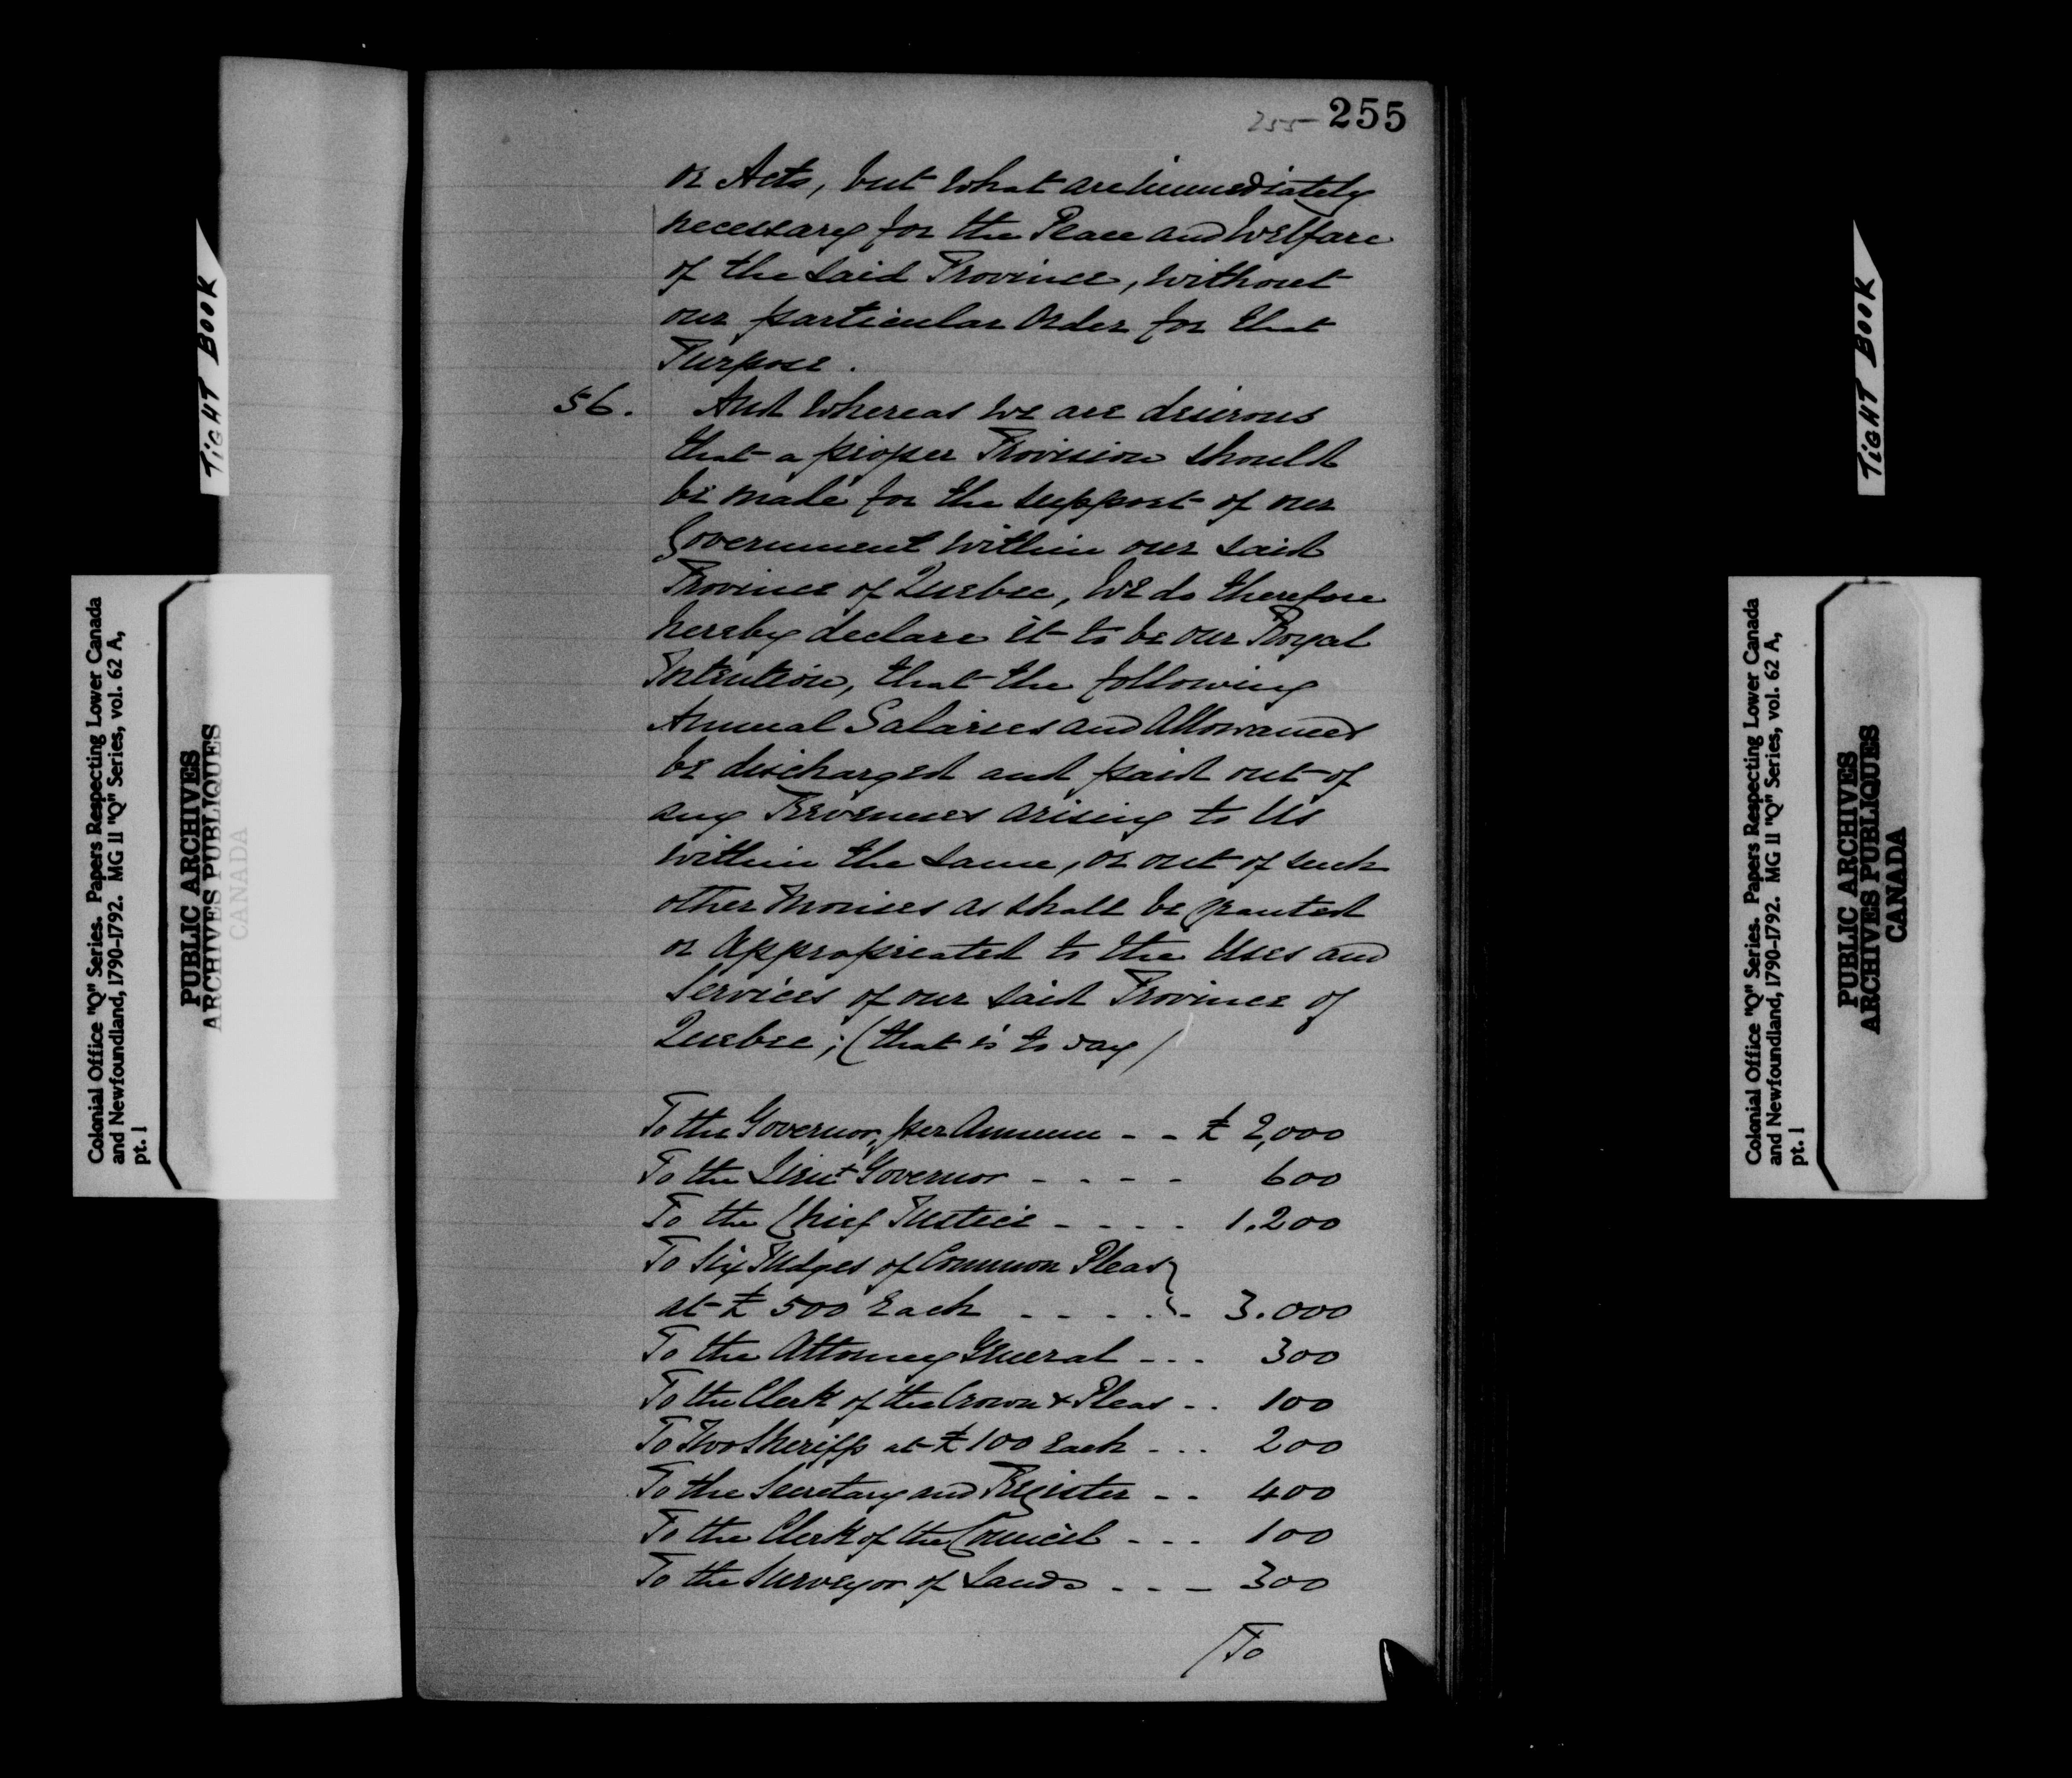 255 255
or Acts, but what are immediately
necessary for the Peace and Welfare
of the said Province, without
our particular Order for that
Purpose.
56. And Whereas We are desirous
that a proper Provision should
be made for the support of our
Government within our said
Province of Quebec, We do therefore
hereby declare it to be our Royal
Intention, that the following
Annual Salaries and Allowances
be discharged and paid out of
any Revenues arising to Us
within the same, or out of such
other Monies as shall be granted
or appropriated to the Uses and
Services of our said Province of
Quebec; (that is to say)
To the Governor, per Annum - - £ 2,000
To the Lieut. Governor - - - - 600
To the Chief Justice - - - - 1.200
To Six Judges of Common Pleas
at £ 500 Each - - - - - 3.000
To the Attorney General - - - 300
To the Clerk of the Crown & Pleas - - 100
To Two Sheriffs at £ 100 Each - - - 200
To the Secretary and Register - - 400
To the Clerk of the Council - - - 100
To the Surveyor of Lands - - - 300
/To
TIGHT BOOK
Colonial Office "Q" Series. Papers Respecting Lower Canada
and Newfoundland, 1790-1792. MG 11 "Q" Series, vol. 62 A,
pt. 1
PUBLIC ARCHIVES
ARCHIVES PUBLIQUES
CANADA
TIGHT BOOK
Colonial Office "Q" Series. Papers Respecting Lower Canada
and Newfoundland, 1790-1792. MG 11 "Q" Series, vol. 62 A,
pt. 1
PUBLIC ARCHIVES
ARCHIVES PUBLIQUES
CANADA